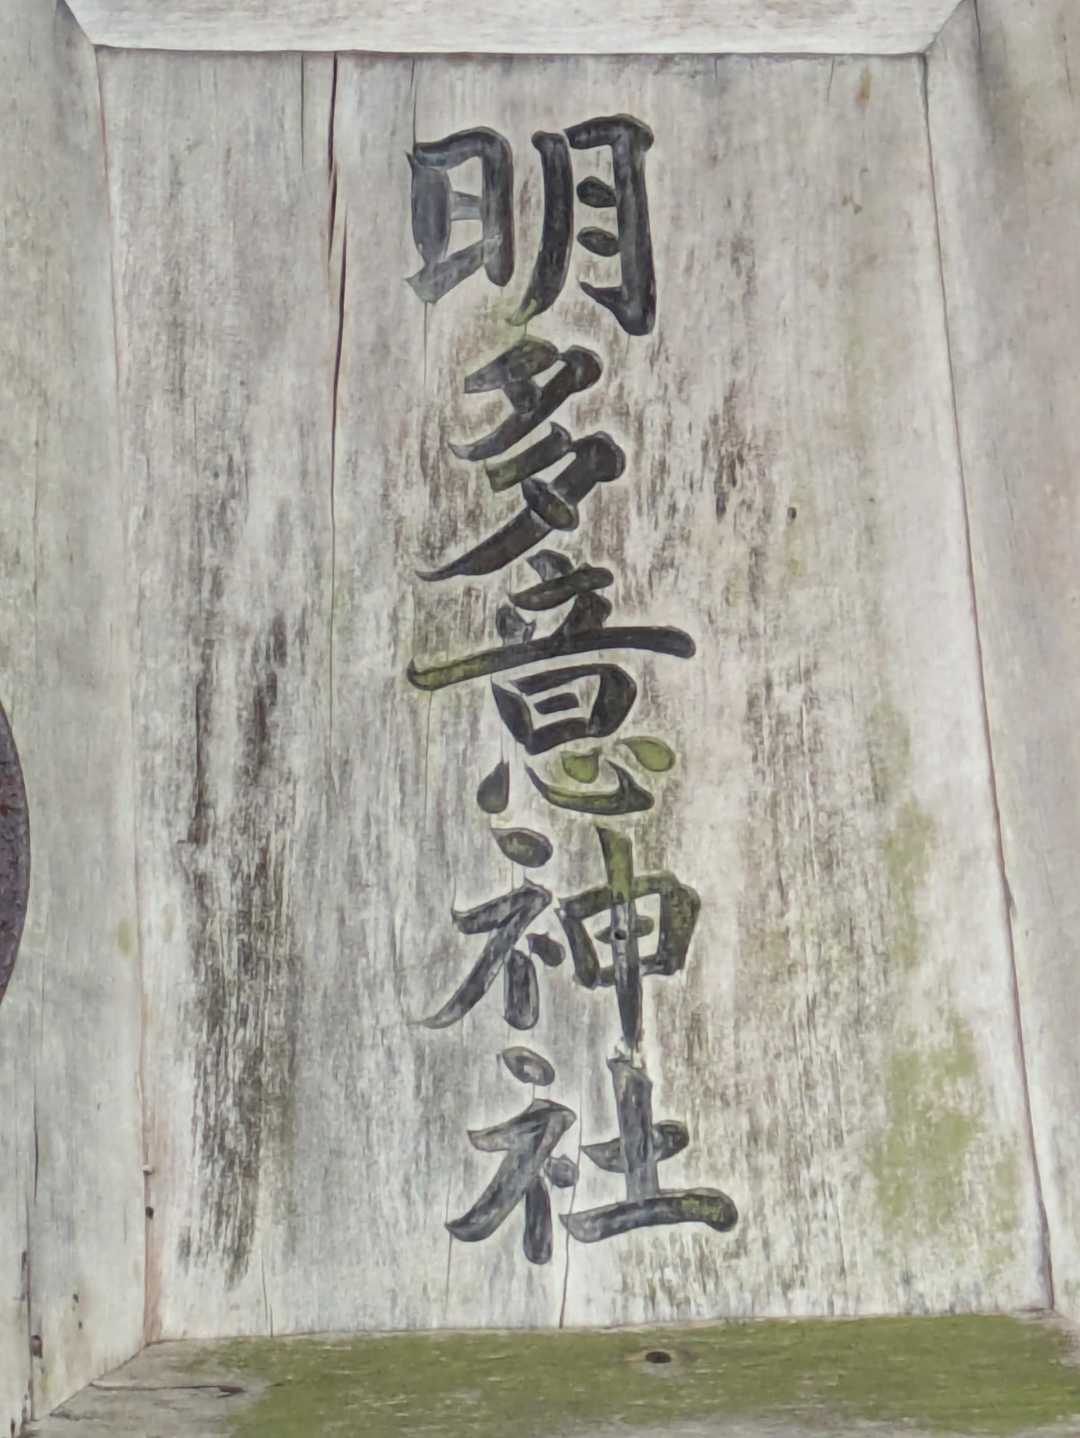 明多意神社